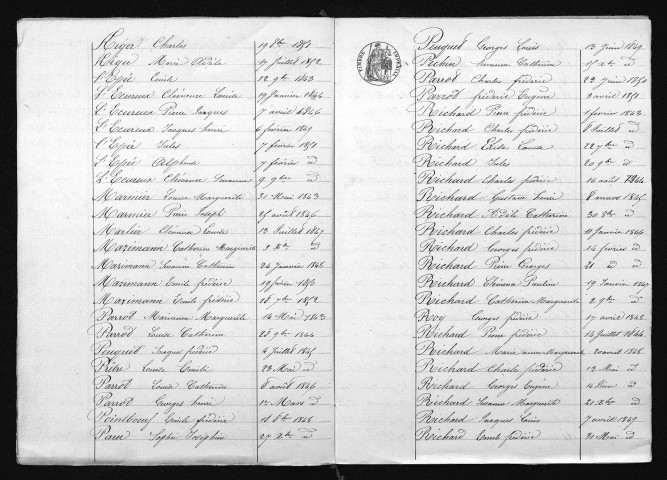 Heger Charles 19 8bre 1851
Heger Marie Adèle 17 Juillet 1852
L'Epée Emile 12 9bre 1843
L'Ecureux Clémence Louise 19 Janvier 1846
L'Ecureux Pierre Jacques 7 avril 1846
L'Ecureux Jacques henri 6 fevrier 1849
L'Epée Jules 7 février 1851
L'Epée Alphonse 7 février id
L'Ecureux Clémence Susanne 9 9bre id
Marmier Louise Marguerite 31 Mai 1843
Marmier Pierre Joseph 25 août 1846
Marlier Clémence Louise 13 Juillet 1847
Mazimann Catherine Marguerite 2 Xbre
Mazimann Susanne Catherine 24 Janvier 1848
Mazimann Emile frédéric 19 février 1850
Mazimann Emile frédéric 18 7bre 1852
Parrot Marianne Marguerite 14 Mai 1843
Parrot Louise Catherine 28 9bre 1844
Peuguet Jacques frédéric 4 Juillet 1845
Prêtre Louise Emilie 23 Mai id
Parrot Louise Catherine 8 août 1846
Parrot Georges henri 12 Mars id
Pointboeuf Emile frédéric 18 8bre 1848
Paur Sophie Joséphine 27 Xbre id
TIMBRE IMPERIAL
Peuguet Georges Louis 13 Juin 1849
Susanne Catherine 15 Xbre id
Parrot Charles frédéric 23 Juin 1850
Parrot frédéric Eugène 2 avril 1851
Richard Pierre frédéric 1 fevrier 1843
Richard Charles frédéric 8 Juillet id
Richard Elise Louise 22 7bre id
Richard Jules 20 9bre id
Richard Charles frédéric 16 août 1844
Richard Gustave henri 8 mars 1845
Richard Adèle Catherine 30 8bre id
Richard Charles frédéric 11 Janvier 1846
Richard Georges frédéric 14 fevrier id
Richard Pierre Georges 31 id id
Richard Clémence Pauline 19 Janvier 1847
Richard Catherine Marguerite 2 9bre id
Roy Georges frédéric 17 avril 1848
Richard Pierre frédéric 14 Juillet 1844
Richard Marie anne Marguerite 20 avril 1848
Richard Charles frédéric 13 Mai id
Richard Georges Eugène 14 Juin id
Richard Susanne Marguerite 21 Xbre id
Richard Jacques Louis 7 avril 1849
Richard Emile frédéric 31 Mai id